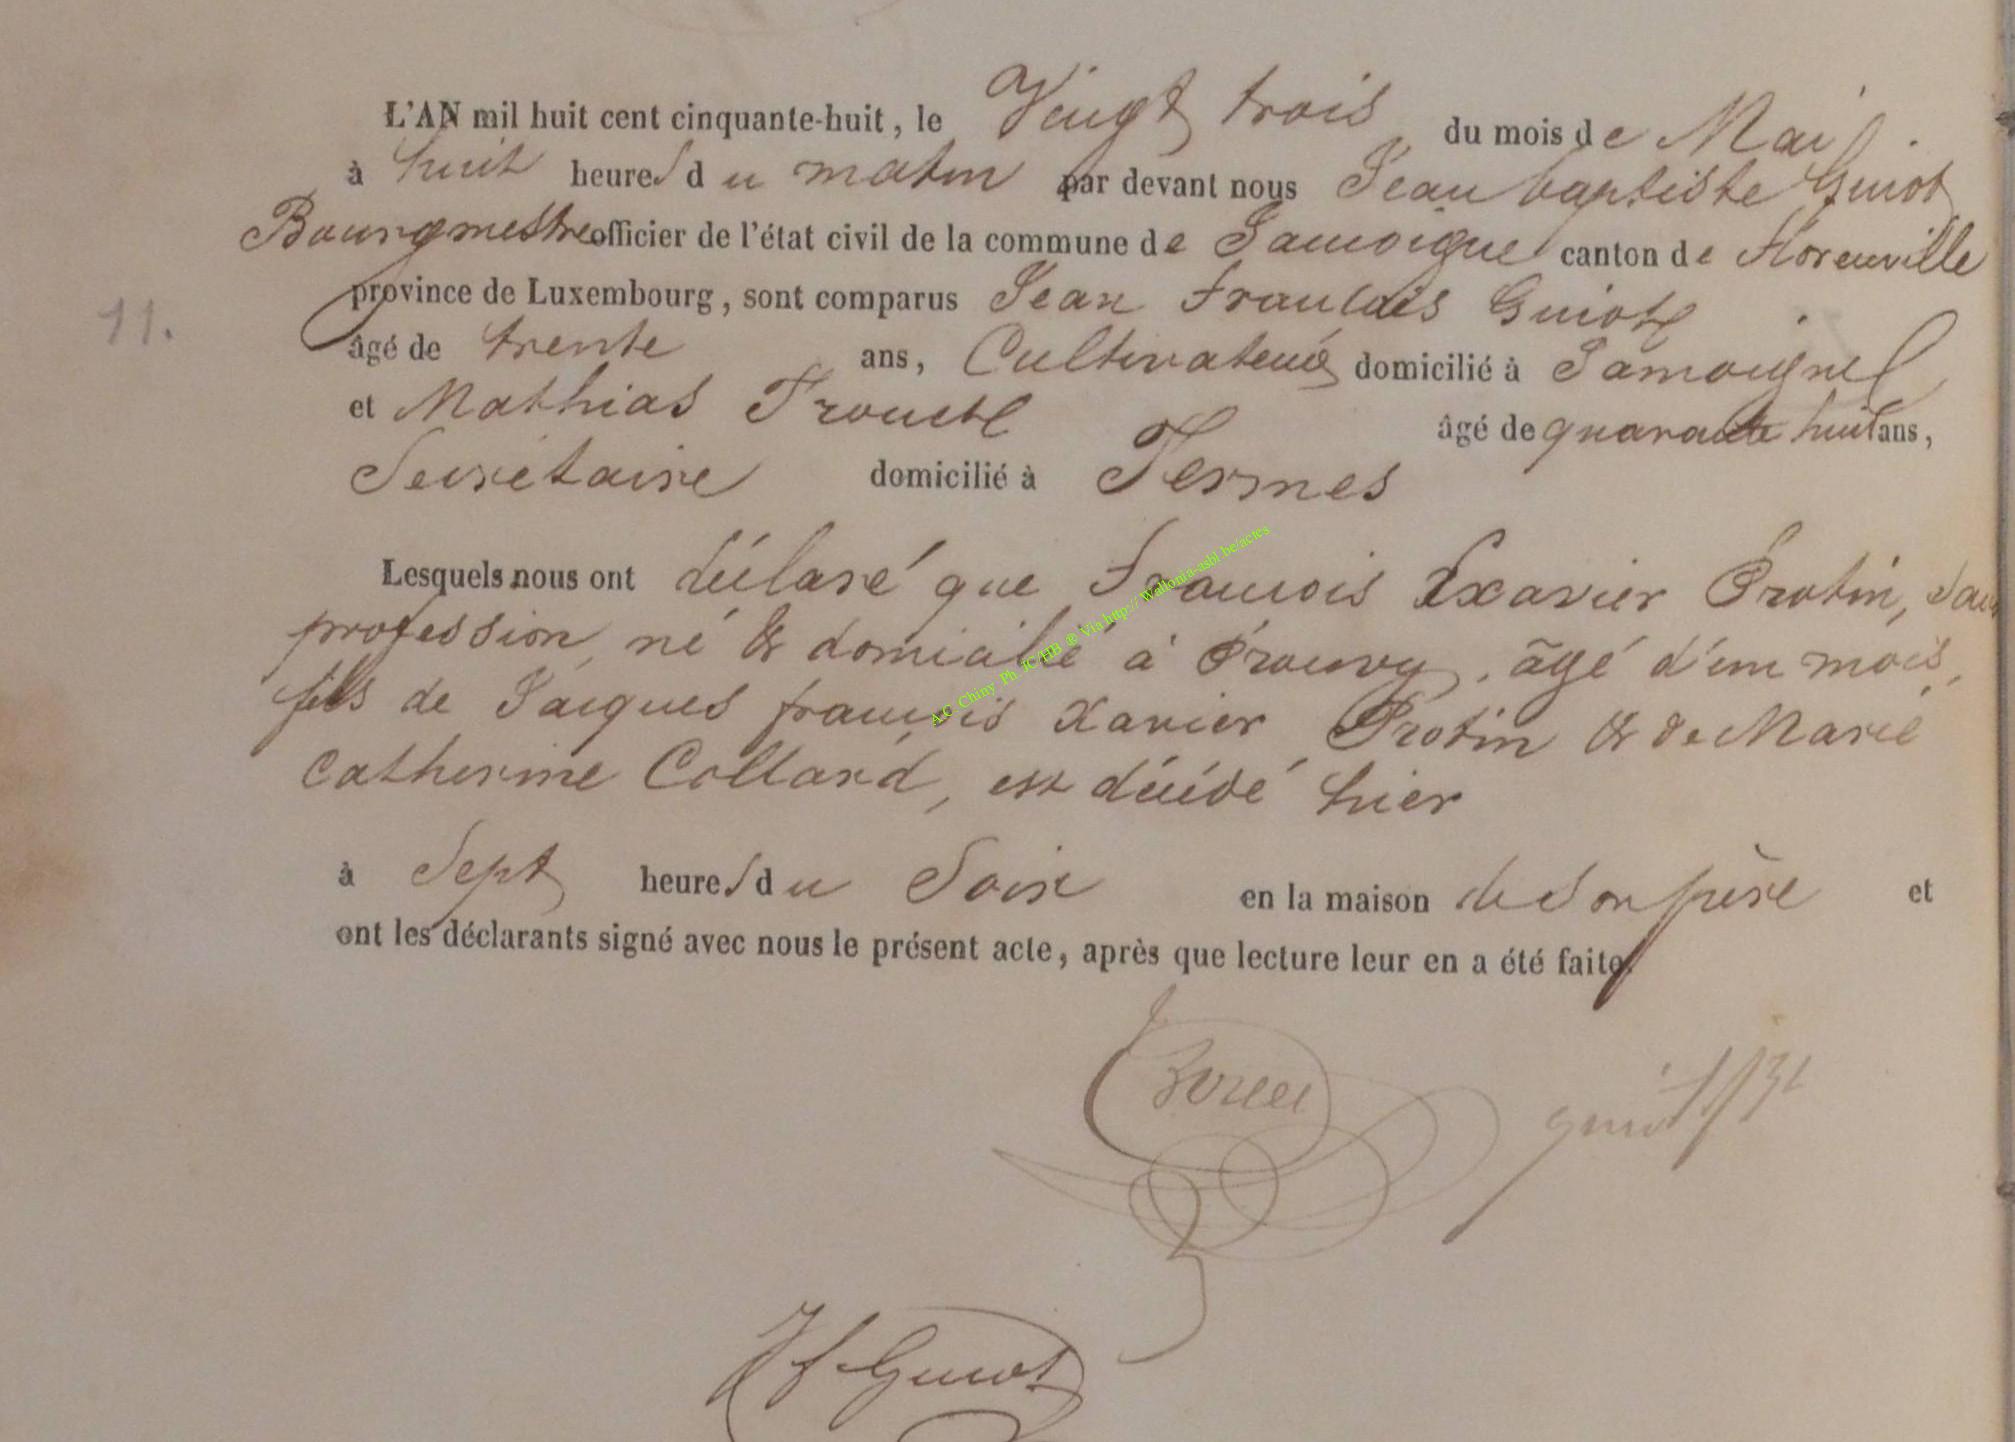 L'AN mil huit cent cinquante-huit, le Vingt trois du mois de Mai
à huit heures du matin par devant nous Jean baptiste Guiot
Bourgmestre officier de l'état civil de la commune de Jamoigne canton de Florenville
11.
province de Luxembourg, sont comparus Jean Francois Guiot
âgé de trente ans, Cultivateur domicilié à Jamoigne
et Mathias âgé de quarante huit ans,
Secrétaire domicilié à Termes
Lesquels nous ont déclaré que Francois Xavier Protin, sans
profession, né & domicilié à Prouvy, âgé d'un mois,
fils de Jacques françois Xavier Protin & de Marie
Catherine Collard, est décédé hier
à Sept heures du Soir en la maison de son père et
ont les déclarants signé avec nous le présent acte, après que lecture leur en a été faite.
A.C. Chiny Ph. JC HB ® Via http:// Wallonia-asbl.be/actes
guiot
J f Guiot